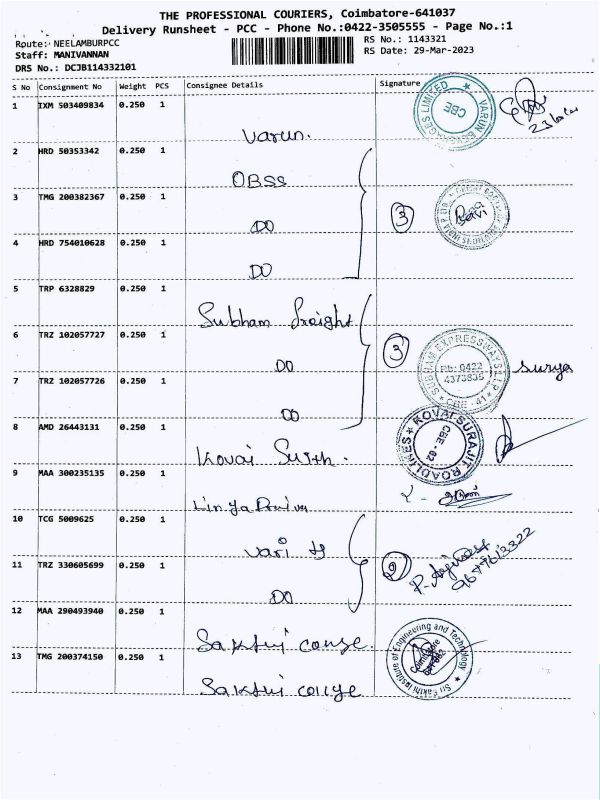 THE PROFESSIONAL COURIERS, Coimbatore-641037
Delivery Runsheet - PCC - Phone No.:0422-3505555 - Page No.:1
Route: NEELAMBURPCC
RS No.: 1143321
Staff: MANIVANNAN
RS Date: 29-Mar-2023
DRS No.: DCJB114332101
S No Consignment No Weight PCS Consignee Details Signature
1 IXM 503409834 0.250 1
Varun.
VARUN LIMITED
CBE
2 HRD 50353342 0.250 1
OBSS
3 TMG 200382367 0.250 1
DO
3
4 HRD 754010628 0.250 1
DO
5 TRP 6328829 0.250 1
Subham freight
6 TRZ 102057727 0.250 1
DO
3
SUBHAM EXPRESSWAYS LLP
Ph: 0422
4373835
CBE - 41
Surya
7 TRZ 102057726 0.250 1
DO
8 AMD 26443131 0.250 1
Kovai
KOVAI SURAJIT ROADLINES
CBE - 62
9 MAA 300235135 0.250 1
10 TCG 5009625 0.250 1
2
9677613322
11 TRZ 330605699 0.250 1
DO
12 MAA 290493940 0.250 1
Sakthi
Sri Sakthi Institute of Engineering and Technology
Coimbatore
13 TMG 200374150 0.250 1
Sakthi college